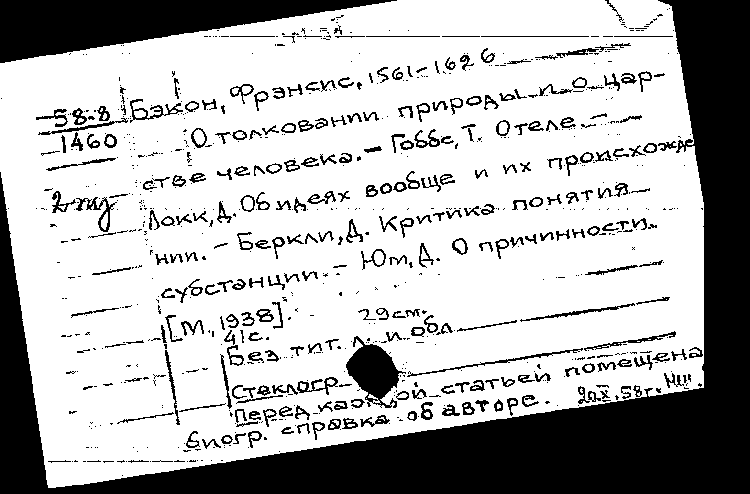 58-8
1460
2 экз
Бэкон, Фрэнсис, 1561-1626
О толковании природы и о цар-
стве человека. - Гоббс, Т. О теле. -
Локк, Д. Об идеях вообще и их происхожде
нии. - Беркли, Д. Критика понятия
субстанции. - Юм, Д. О причинности.
[М., 1938].
41 с. 29 см.
Без тит. л. и обл
Стеклогр.
Перед каждой статьей помещена
биогр. справка об авторе.
20.X.58г.